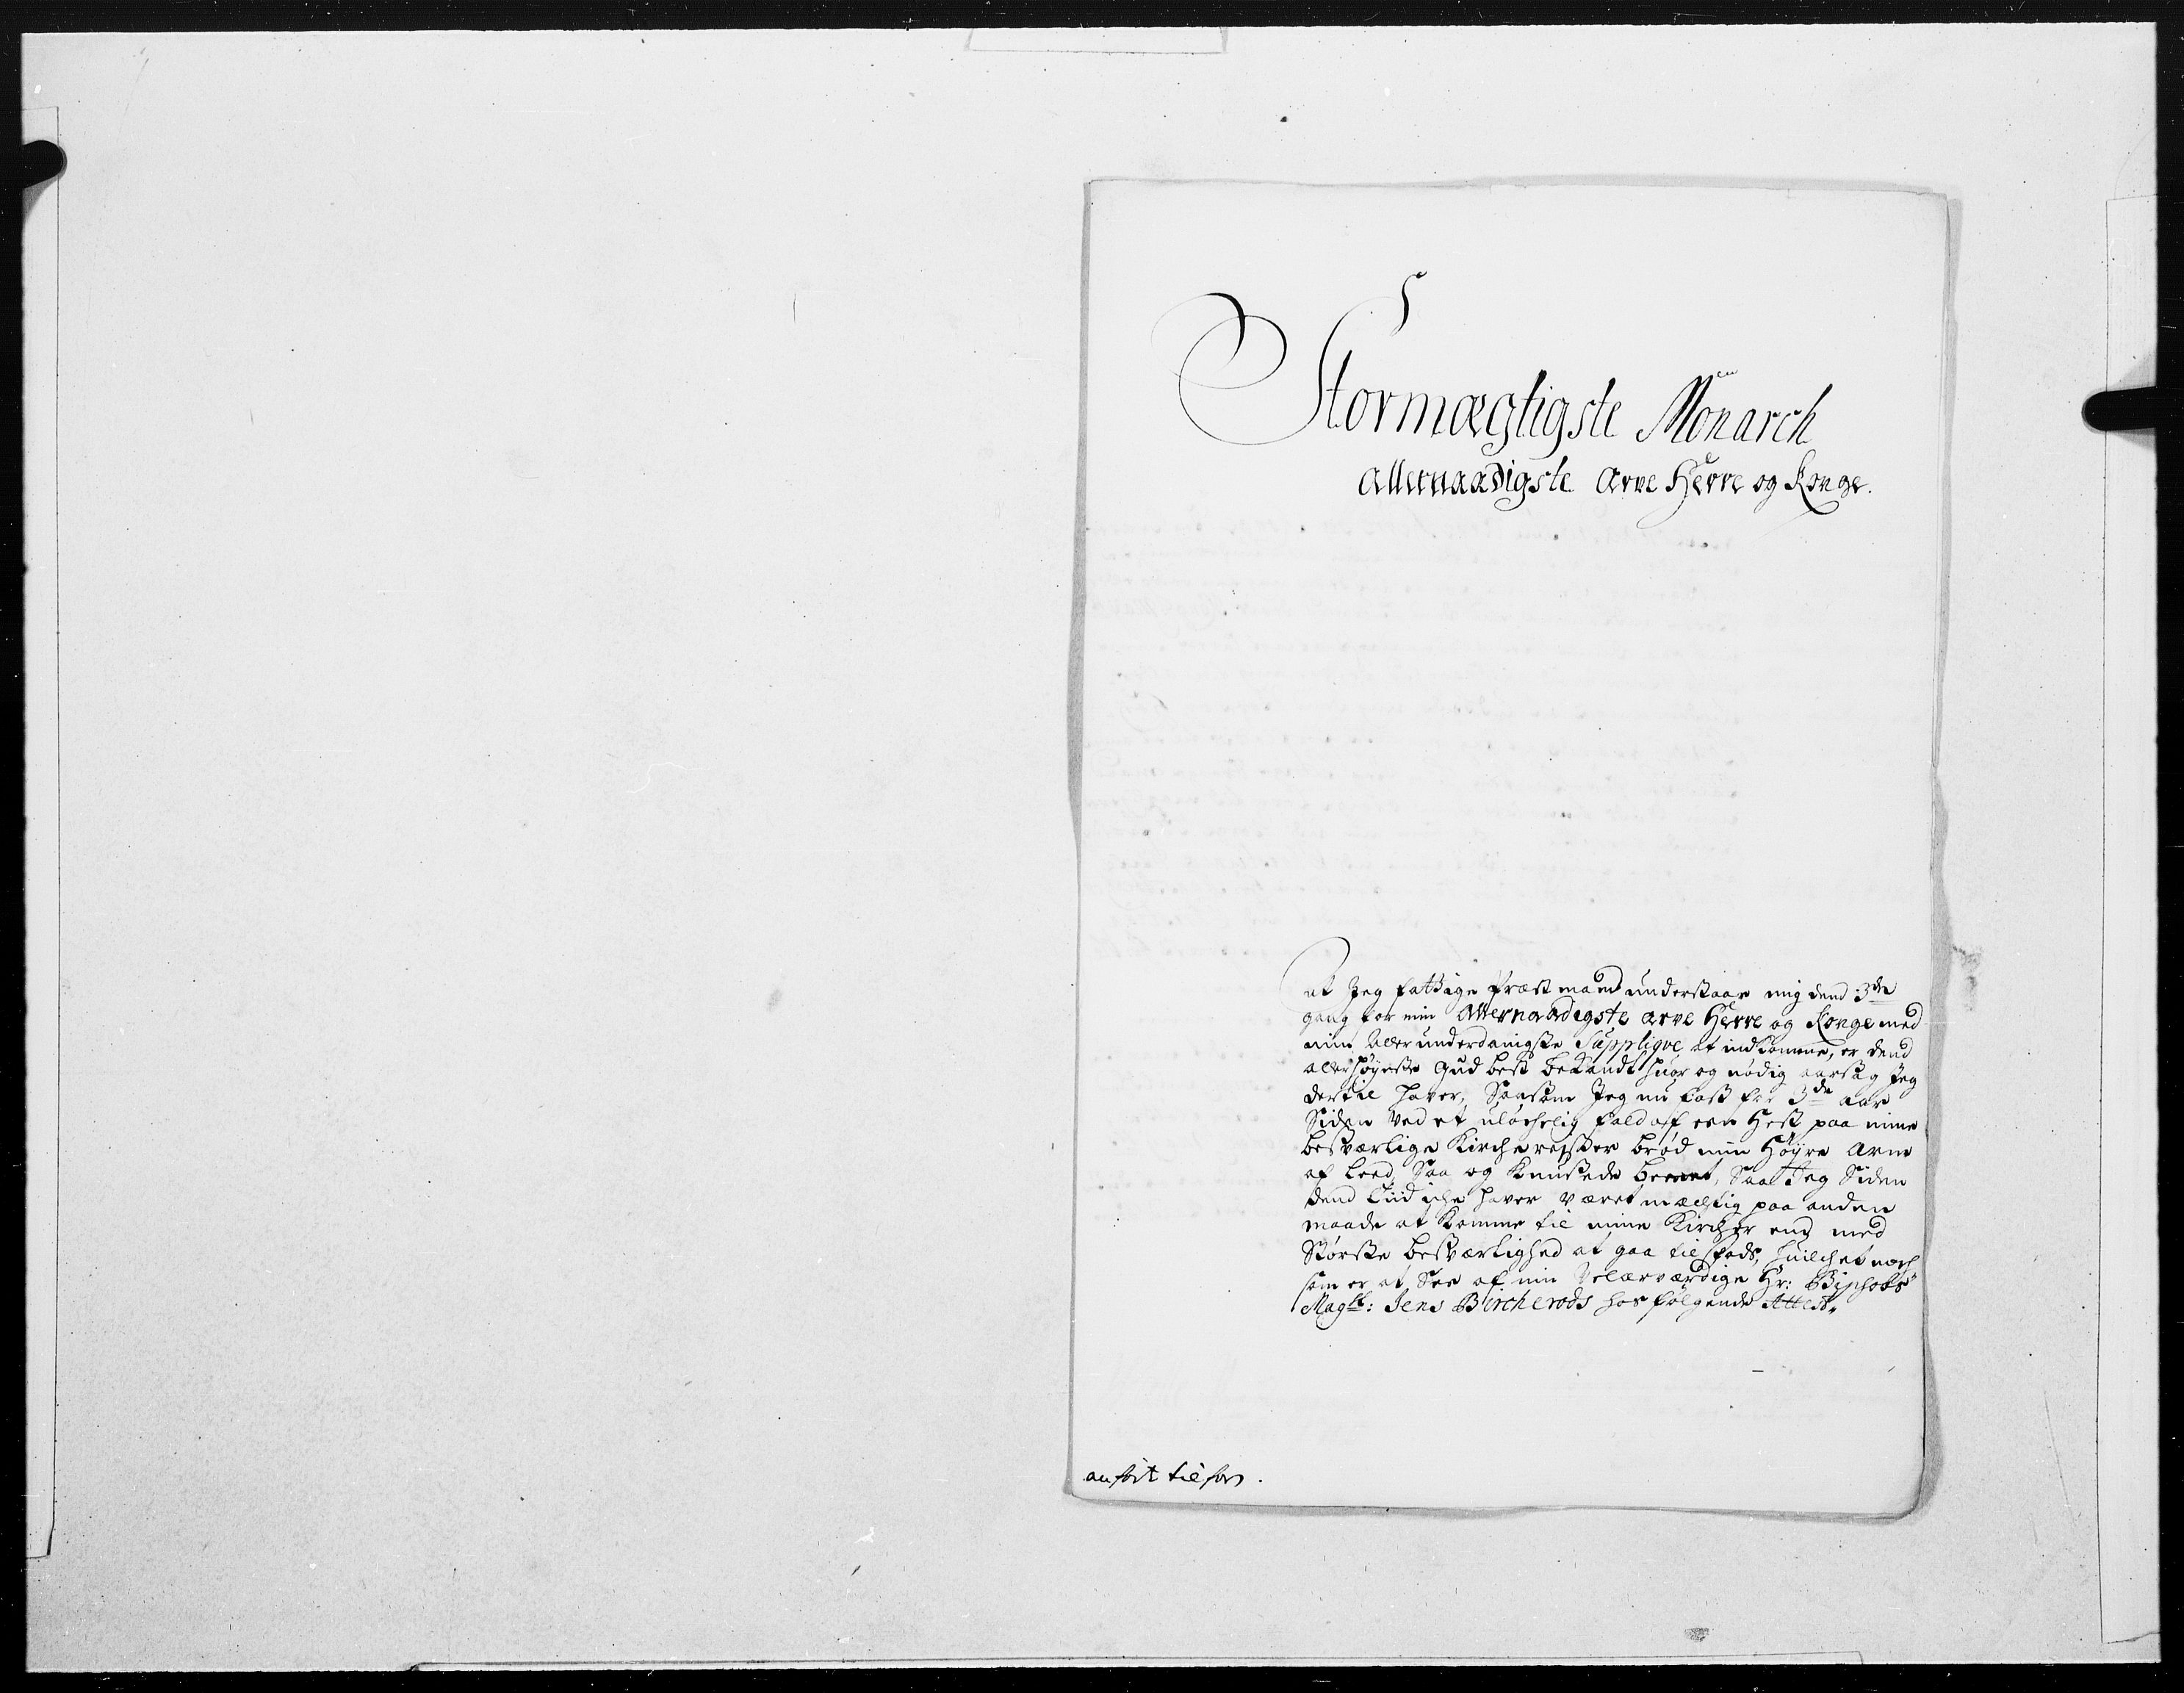 Stormægtigste Monarch
Allernaadigste Arve Herre og Konge.
at Jeg fattige Præstmand understaar mig dend 3de
gang for min Allernaadigste Arve Herre og Konge med
min Allerunderdanigste Supplique at indkomme, er dend
allerhöyeste Gud best bekandt huor og nødig aarsag Jeg
dertil haver, Saasom Jeg nu fast for 3de aar
Siden Ved et uløchelig fald af een Hest paa mine
besværlige Kirche rejsser brød min Höyre Arm
af leed, Saa og knusede beenet, Saa Jeg Siden
dend Tiid iche haver været mæchtig paa anden
maade at komme til mine Kircher end med
Største besværlighed at gaa til fods, huilchet noch
som er at See af min Velærværdige Hr: Bischobs
Magst: Jens Bircherods hosfølgende Attest,
anført tilforn.